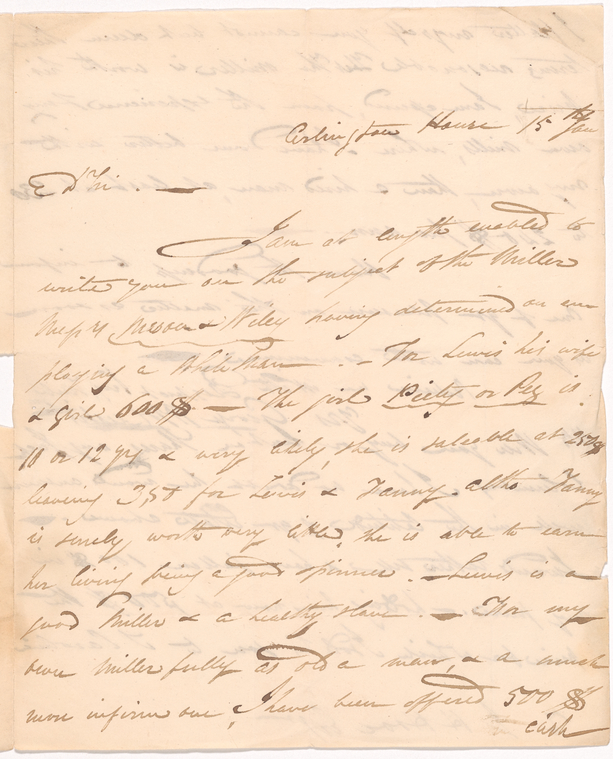 Arlington House 15th Jan
D Sir. —
I am at length enabled to
write you on the subject of the Miller
Mess rs & Wiley having determined on em
ploying a White Man. — For Lewis his wife
& girl 600 $ — The girl Piety or Peg is
10 or 12 yrs & very likely, she is saleable at 250 $
leaving 350 for Lewis & Fanny. altho Fanny
is surely worth very little, she is able to earn
her living being a good spinner. — Lewis is a
good Miller & a healthy slave. — For my
own Miller fully as old a man, & a much
more infirm one, I have been offered 500 $
cash